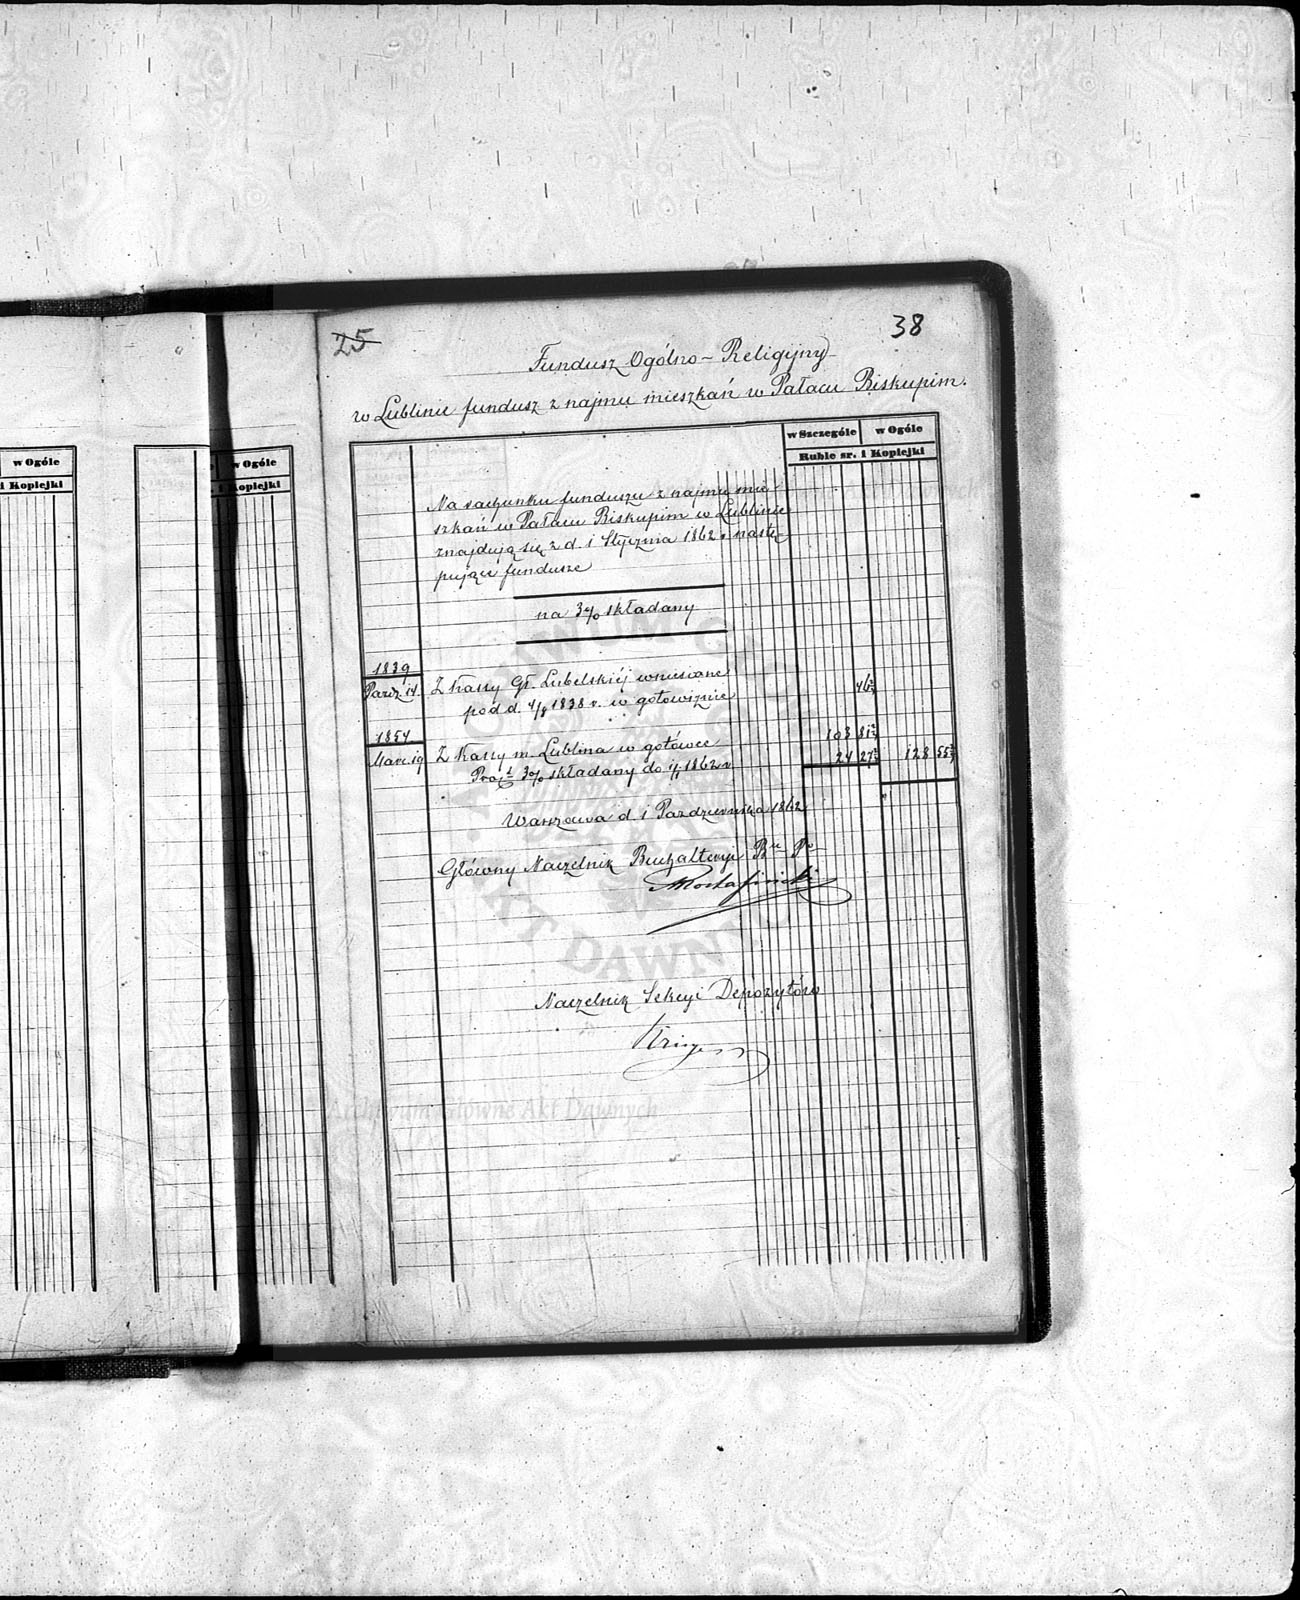 25
38
Fundusz Ogólno-Religijny
w Lublinie fundusz z najmu mieszkań w Pałacu Biskupim.
w Szczególe w Ogóle
Ruble sr. i Kopiejki
w Ogóle
i Kopiejki
w Ogóle
i Kopiejki
Na rachunku funduszu z najmu mie-
szkań w Pałacu Biskupim w Lublinie
znajdują się z d. 1 Stycznia 1862 r. nastę-
pujące fundusze
na 3% składany
1839
Paźdz. 14. Z Kassy Gł. Lubelskiéj wniesione
pod d. 4/8 1838 r. w gotowiznie 46
1854
Marc. 19 Z Kassy m. Lublina w gotówce 103 81
3% składany do 1/1 1862 r. 24 27 128 55
Warszawa d. 1 Października 1862
Główny Naczelnik Buchalteryi
Naczelnik Sekcyi Depozytów
ARCHIWUM GŁÓWNE AKT DAWNYCH
Archiwum Główne Akt Dawnych